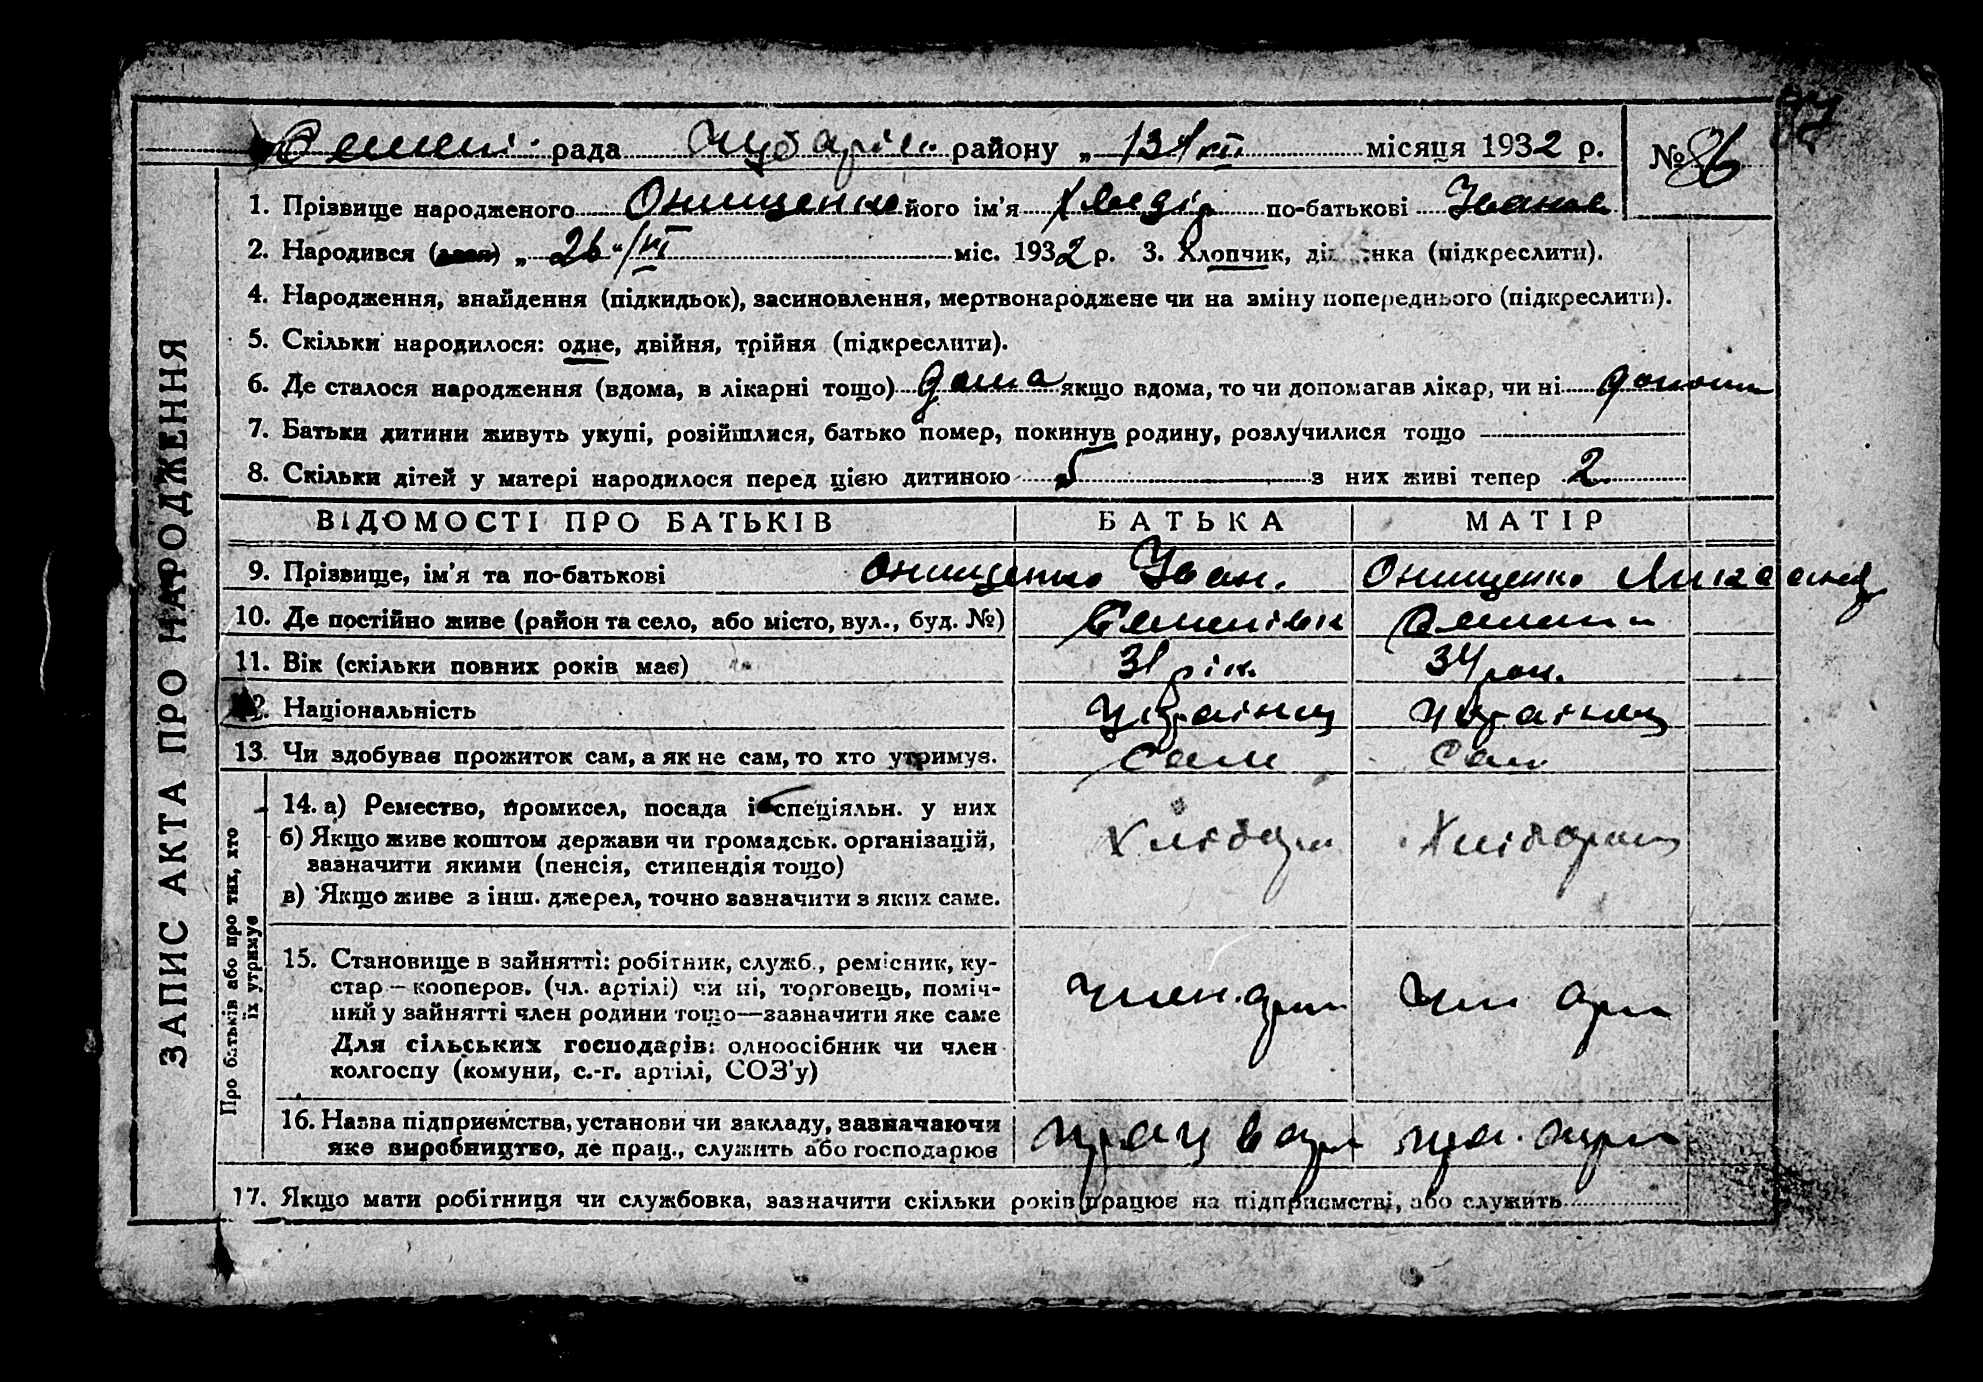 рада Чубарівс. району „ 13 / VII місяця 1932 р. № 86
1. Прізвище народженого Онищенко його ім'я Хведір по-батькові Іванов
2. Народився (    ) „ 26 " / VI міс. 1932 р. 3. Хлопчик, дівчинка (підкреслити).
4. Народження, знайдення (підкидьок), засиновлення, мертвонароджене чи на зміну попереднього (підкреслити).
5. Скільки народилося: одне, двійня, трійня (підкреслити).
6. Де сталося народження (вдома, в лікарні тощо) дома якщо вдома, то чи допомагав лікар, чи ні
7. Батьки дитини живуть укупі, розійшлися, батько помер, покинув родину, розлучилися тощо
8. Скільки дітей у матері народилося перед цією дитиною 5 з них живі тепер 2
ВІДОМОСТІ ПРО БАТЬКІВ БАТЬКА МАТІР
9. Прізвище, ім'я та по-батькові Онищенко Іван. Онищенко
10. Де постійно живе (район та село, або місто, вул., буд. №) Семенівк
11. Вік (скільки повних років має) 31 рік. 34 рок.
12. Національність Українец Українец
13. Чи здобуває прожиток сам, а як не сам, то хто утримує. Сам Сам
14. а) Ремество, промисел, посада і спеціяльн. у них
б) Якщо живе коштом держави чи громадськ. організацій,
зазначити якими (пенсія, стипендія тощо)
в) Якщо живе з інш. джерел, точно зазначити з яких саме.
Хлібор Хлібороб
15. Становище в зайнятті: робітник, служб., ремісник, ку-
стар — кооперов. (чл. артілі) чи ні, торговець, поміч-
ний у зайнятті член родини тощо—зазначити яке саме
Для сільських господарів: одноосібник чи член
колгоспу (комуни, с.-г. артілі, СОЗ'у)
Член. арт Чл арт
16. Назва підприємства, установи чи закладу, зазначаючи
яке виробництво, де прац., служить або господарює
прац в арт пра. арт
17. Якщо мати робітниця чи службовка, зазначити скільки років працює на підприємстві, або служить
ЗАПИС АКТА ПРО НАРОДЖЕННЯ
Про батьків або про тих, хто
їх утримує